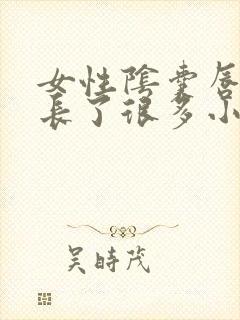 女性陰囊唇
長了很多小
吴時茂